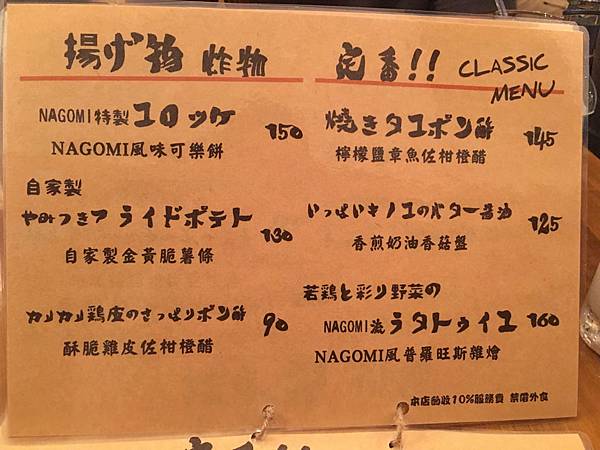 揚げ物 炸物
NAGOMI特製 コロッケ 150
NAGOMI風味可樂餅
自家製
やみつきフライドポテト 130
自家製金黃脆薯條
カリカリ鶏皮のさっぱりポン酢 90
酥脆雞皮佐柑橙醋
定番!! CLASSIC
MENU
焼きタコポン酢 145
檸檬鹽章魚佐柑橙醋
いっぱいキノコのバター醤油 125
香煎奶油香菇盤
若鶏と彩り野菜の
NAGOMI流 ラタトゥイユ 160
NAGOMI風普羅旺斯雜燴
本店酌收10%服務費 禁帶外食